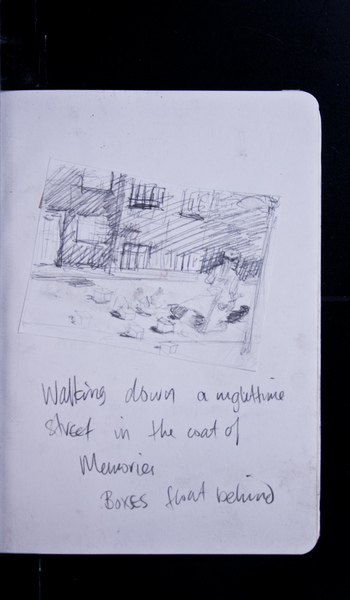 Walking down a nighttime
street in the coat of
Memories
Boxes float behind